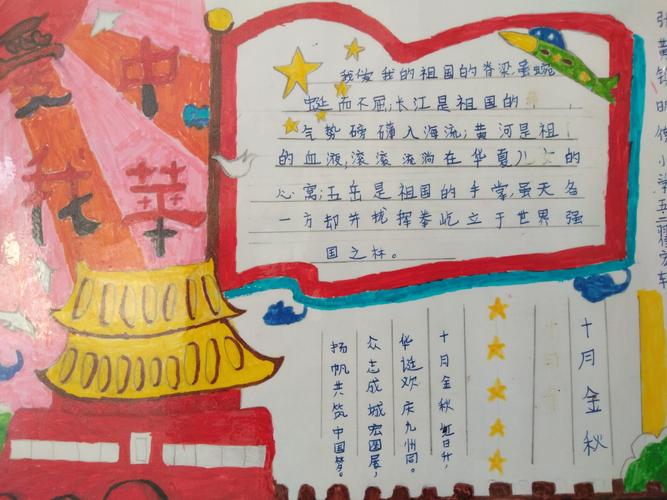 爱我
中華
我的祖国的脊梁,虽蜿
而不屈;长江是祖国的
气势磅礴入海流;黄河是祖
的血液,滚滚流淌在华夏儿 的
心窝;五岳是祖国的手掌,虽天名
一方却并拢挥拳屹立于世界强
国之林。
十月金秋
十月金秋红日升,
华诞欢庆九州同。
众志成城宏图展,
扬帆共筑中国梦。